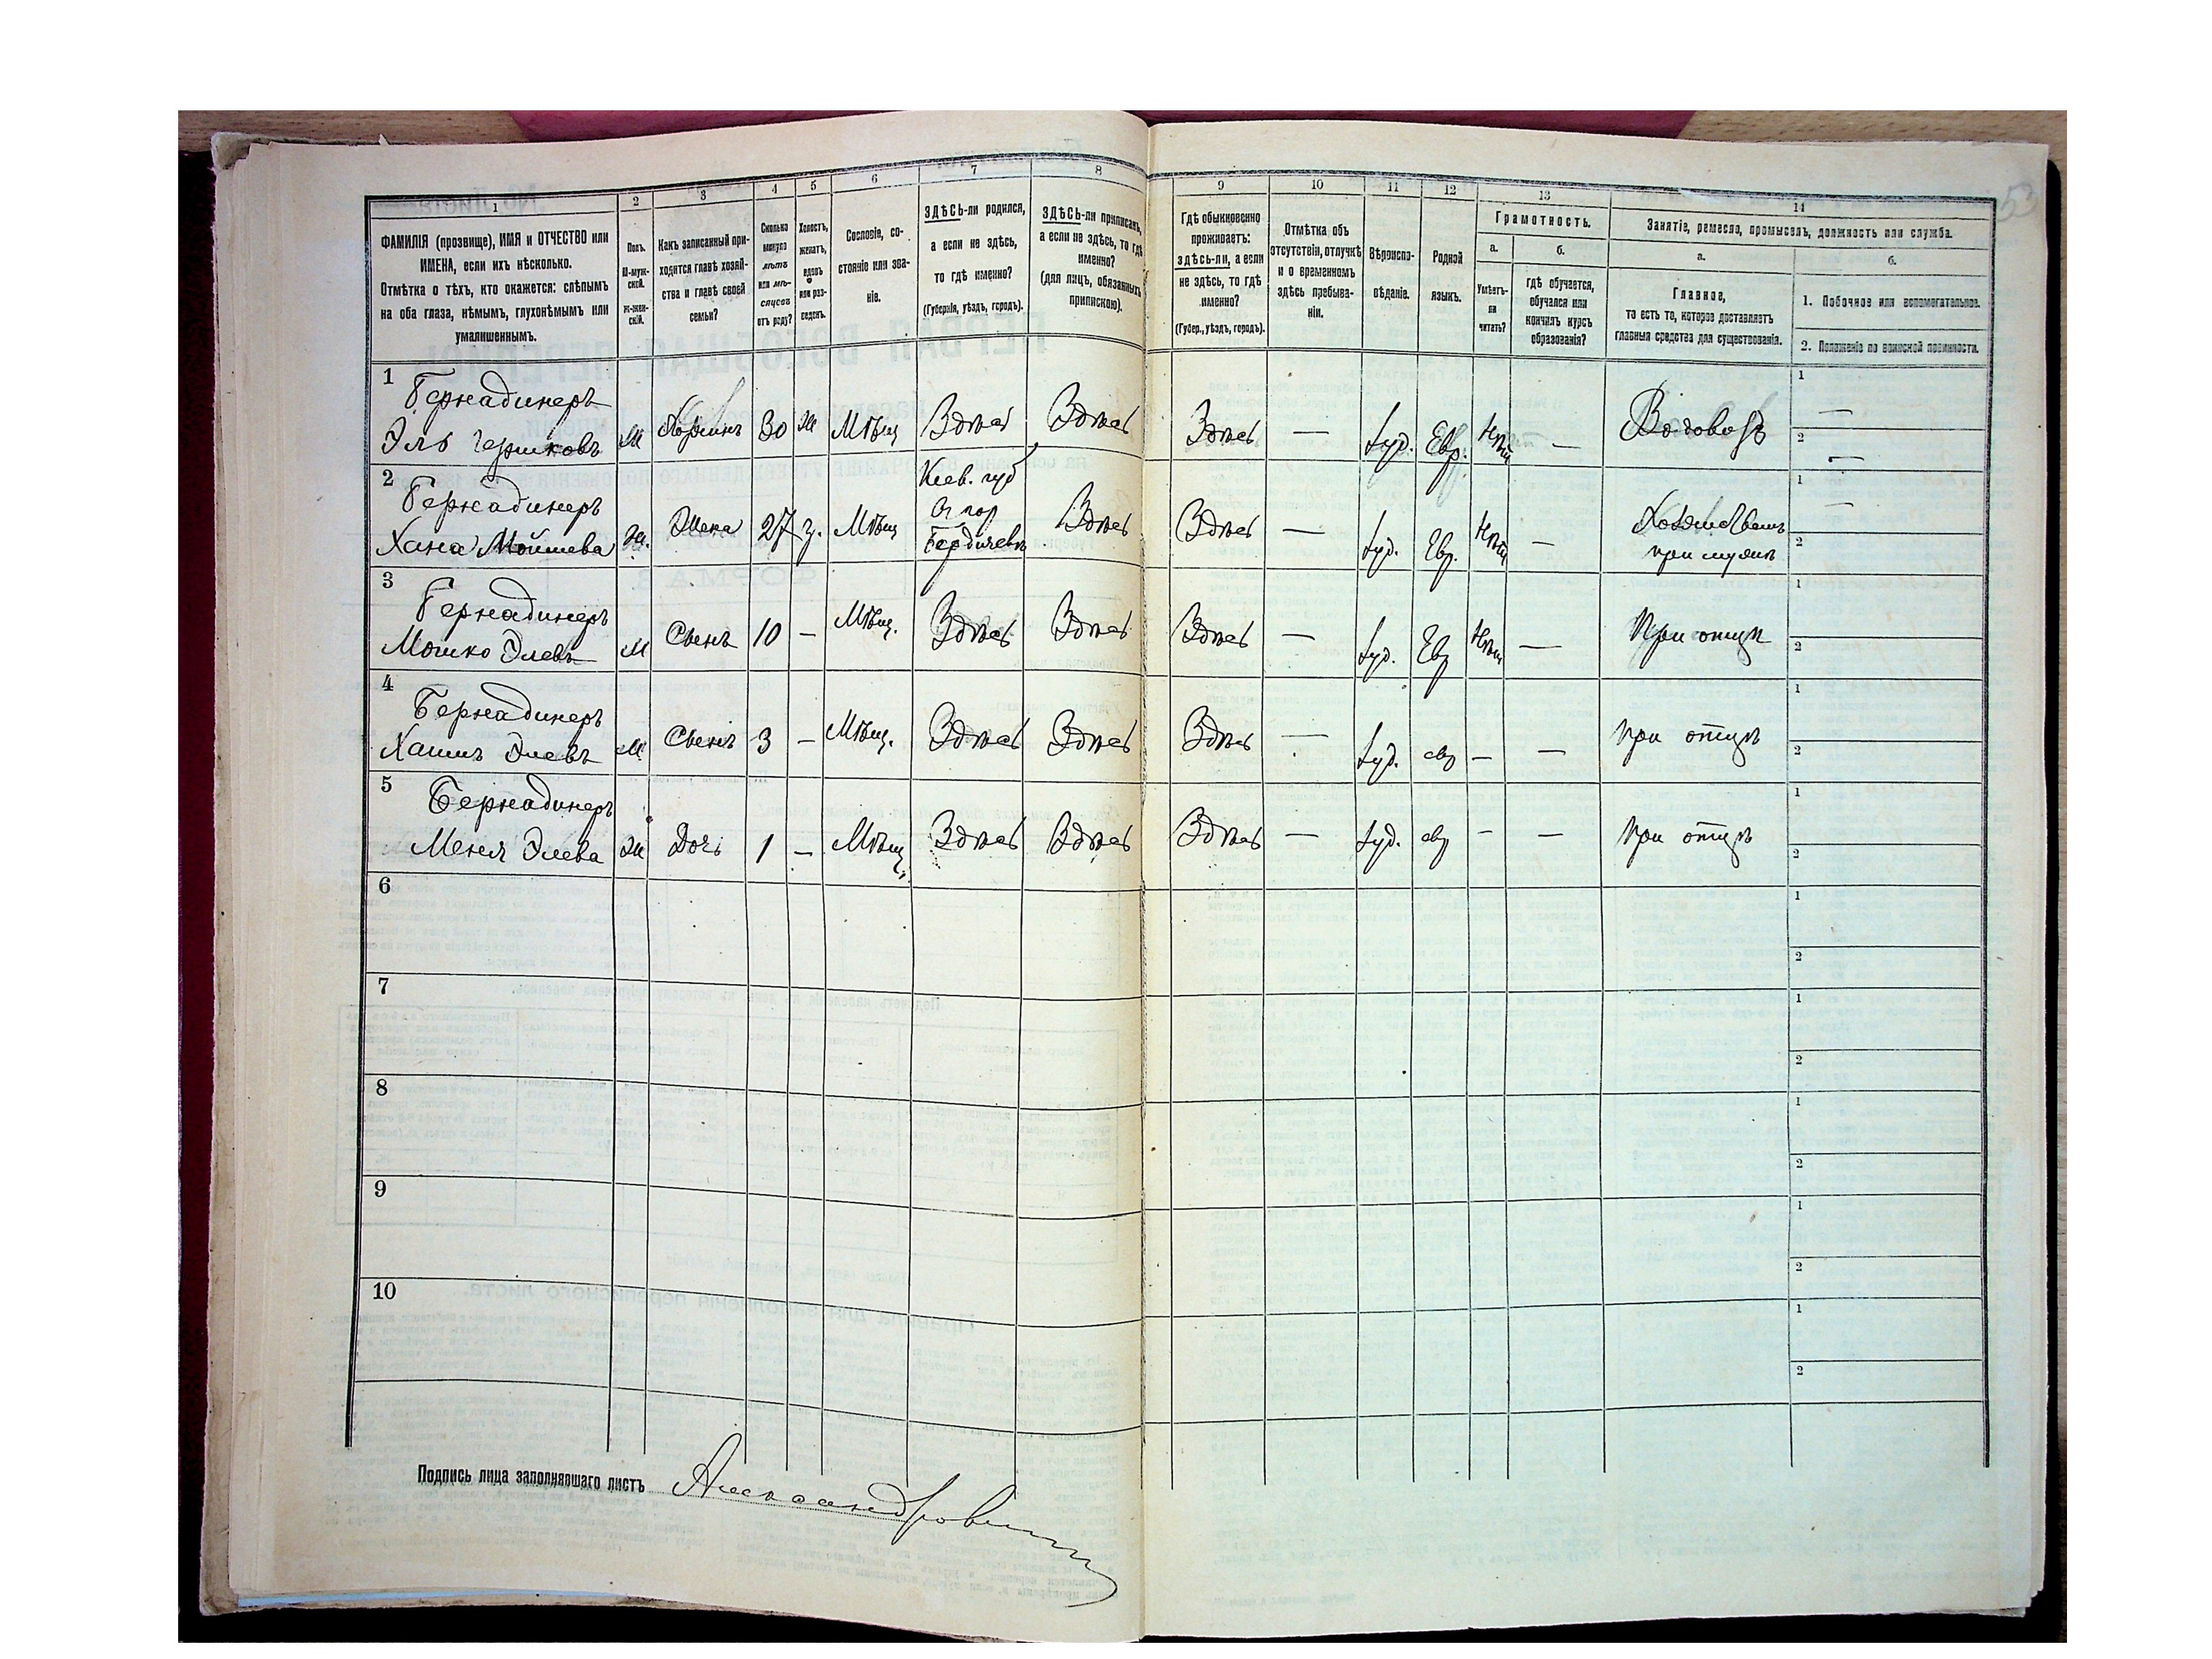 1
ФАМИЛІЯ (прозвище), ИМЯ и ОТЧЕСТВО или
ИМЕНА, если ихъ нѣсколько.
Отмѣтка о тѣхъ, кто окажется: слѣпымъ
на оба глаза, нѣмымъ, глухонѣмымъ или
умалишеннымъ.
2
Полъ.
М-муж-
ской.
Ж-жен-
скій.
3
Какъ записанный при-
ходится главѣ хозяй-
ства и главѣ своей
семьи?
4
Сколько
минуло
лѣтъ
или мѣ-
сяцевъ
отъ роду?
5
Холостъ,
женатъ,
вдовъ
или раз-
веденъ.
6
Сословіе, со-
стояніе или зва-
ніе.
7
ЗДѢСЬ-ли родился,
а если не здѣсь,
то гдѣ именно?
(Губернія, уѣздъ, городъ).
8
ЗДѢСЬ-ли приписанъ,
а если не здѣсь, то гдѣ
именно?
(для лицъ, обязанныхъ
припискою).
9
Гдѣ обыкновенно
проживаетъ:
здѣсь-ли, а если
не здѣсь, то гдѣ
именно?
(Губер., уѣздъ, городъ).
10
Отмѣтка объ
отсутствіи, отлучкѣ
и о временномъ
здѣсь пребыва-
ніи.
11
Вѣроиспо-
вѣданіе.
12
Родной
языкъ.
13
Грамотность.
а.
Умѣетъ-
ли
читать?
б.
гдѣ обучается,
обучался или
кончилъ курсъ
образованія?
14
Занятіе, ремесло, промыселъ, должность или служба.
а.
Главное,
то есть то, которое доставляетъ
главныя средства для существованія.
б.
1. Побочное или вспомогательное.
2. Положеніе по воинской повинности.
53
1
Бернадинеръ
Эль М Хозяинъ 30 ж Мѣщ Здѣсь Здѣсь Здѣсь — Іуд. Евр. Нѣт — Водовозъ
1 —
2 —
2
Бернадинеръ
Хана Мойшева Ж. Жена 27 з. Мѣщ
Кіев. губ
гор
Бердичевъ
Здѣсь Здѣсь — Іуд. Евр. Нѣт —
при мужѣ
1 —
2
3
Бернадинеръ
Мошко Элевъ М Сынъ 10 — Мѣщ. Здѣсь Здѣсь Здѣсь — Іуд. Евр Нѣт — При отцѣ
1
2
4
Бернадинеръ
Хаимъ Элевъ М Сынъ 3 — Мѣщ. Здѣсь Здѣсь Здѣсь — Іуд. евр — — при отцѣ
1
2
5
Бернадинеръ
Меня Элева Ж Дочь 1 — Мѣщ. Здѣсь Здѣсь Здѣсь — Іуд. евр — — при отцѣ
1
2
6
1
2
7
1
2
8
1
2
9
1
2
10
1
2
Подпись лица заполнявшаго листъ